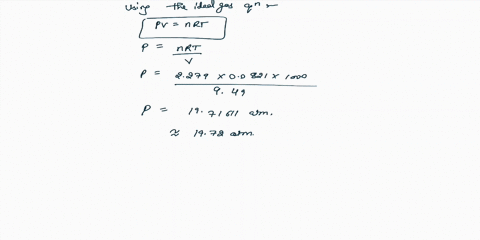 Using the ideal gas qn
PV = nRT
P = nRT
V
P = 2.279 x 0.0821 x 1000
9.49
P = 19.71611 atm.
≈ 19.72 atm